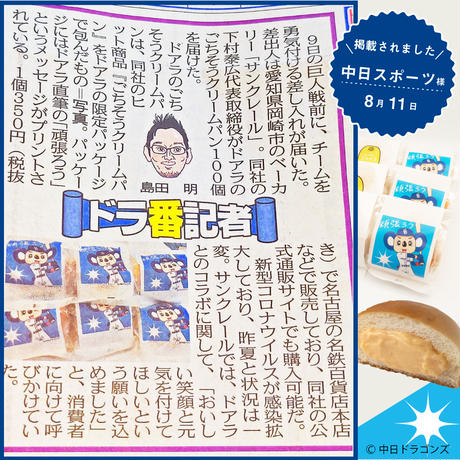 掲載されました
中日スポーツ様
8月11日
9日の巨人戦前に、チームを
勇気付ける差し入れが届いた。
差出人は愛知県岡崎市のベーカ
リー「サンクレール」。同社の
下村泰久代表取締役がドアラの
ごちそうクリームパン100個
を届けた。
ドアラのごち
そうクリームパ
ンは、同社のヒ
ット商品『ごちそうクリームパ
ン』をドアラの限定パッケージ
で包んだもの=写真。パッケー
ジにはドアラ直筆の「頑張ろう」
というメッセージがプリントさ
れている。1個350円(税抜
島田 明
ドラ番記者
き)で名古屋の名鉄百貨店本店
などで販売しており、同社の公
式通販サイトでも購入可能だ。
新型コロナウイルスが感染拡
大しており、昨夏と状況は一
変。サンクレールでは、ドアラ
とのコラボに関して、「おいし
い笑顔と元
気を付けて
ほしいとい
う願いを込
めました」
と、消費者
に向けて呼
びかけてい
た。
頑張ろう
© 中日ドラゴンズ